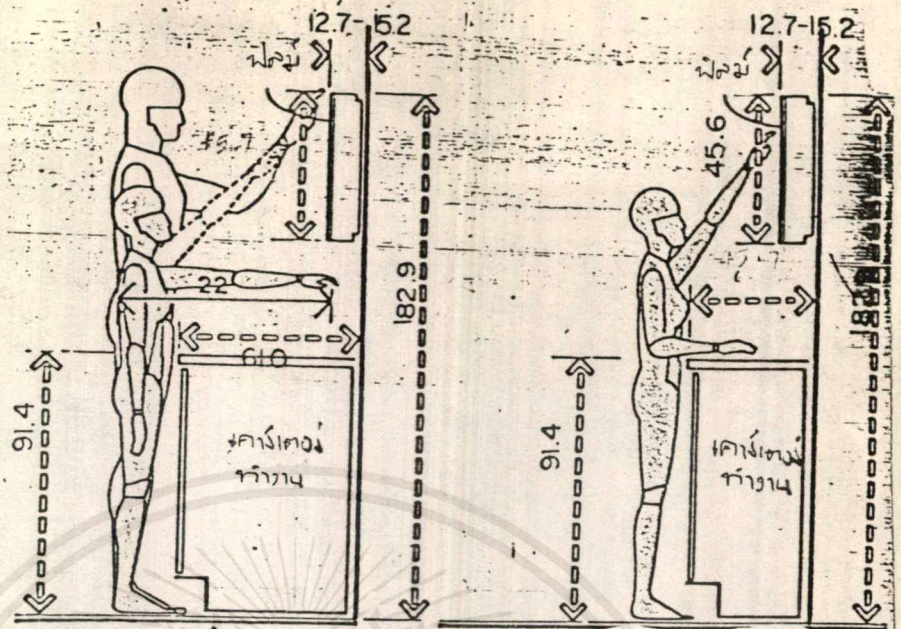 12.7-15.2
ฟิลม์
45.7
22
61.0
182.9
91.4
เคาร์เตอร์
ทำงาน
12.7-15.2
ฟิลม์
45.6
91.4
เคาร์เตอร์
ทำงาน